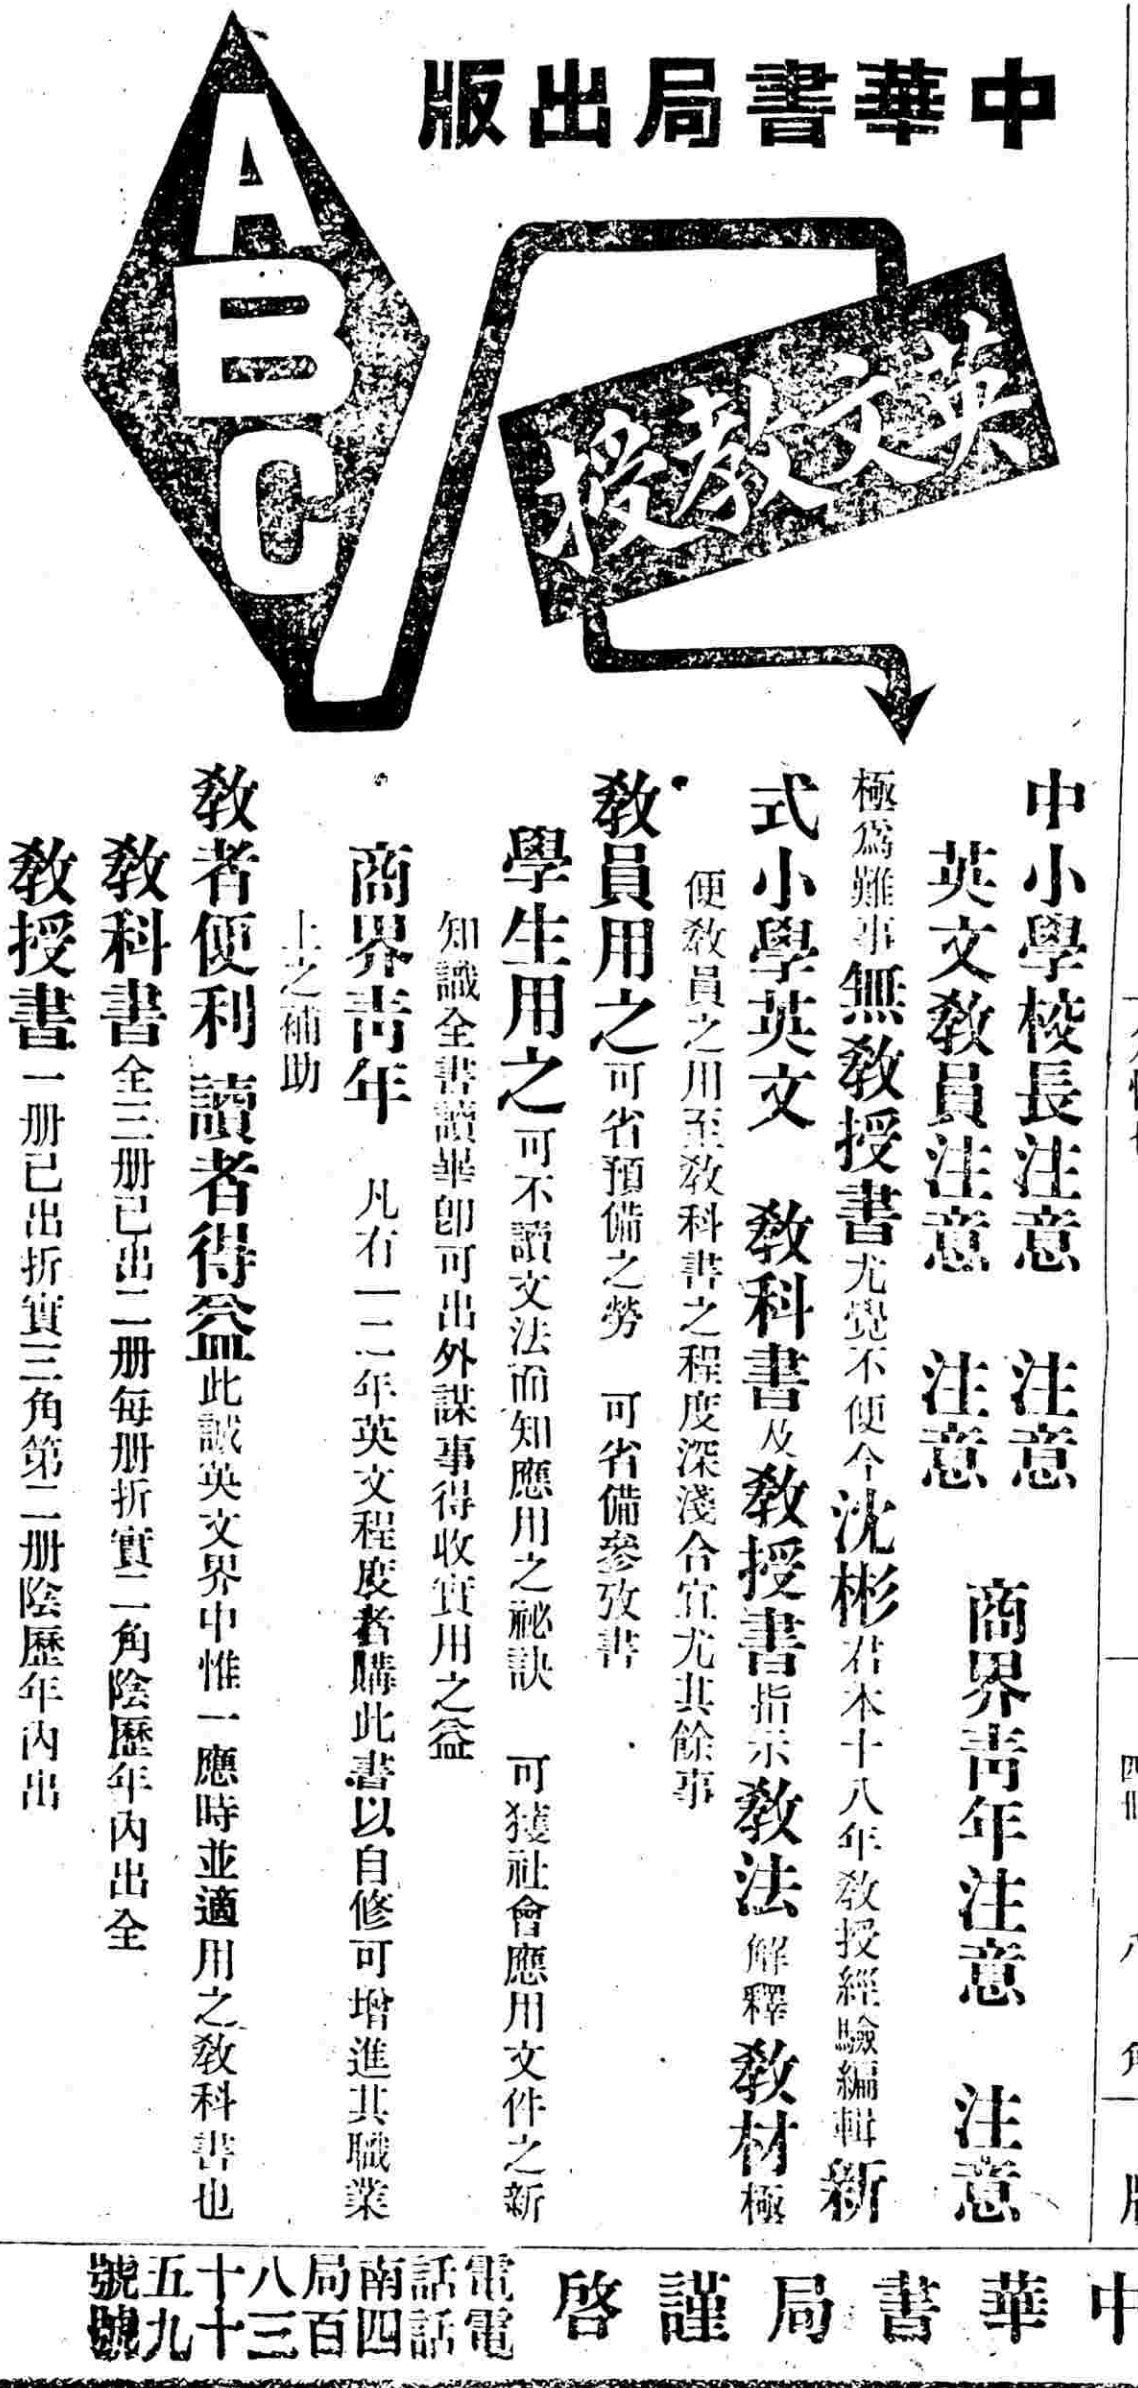 中華書局出版
A
B
C
英文教授
中小學校長注意　注意
英文教員注意　注意
商界青年注意　注意
極爲難事無教授書尤覺不便今沈彬君本十八年教授經驗編輯新
式小學英文　教科書及教授書指示教法解釋教材極
便教員之用至教科書之程度深淺合宜尤其餘事
教員用之可省預備之勞　可省備參攷書
學生用之可不讀文法而知應用之祕訣　可獲社會應用文件之新
知識全書讀畢卽可出外謀事得收實用之益
商界青年　凡有一二年英文程度者購此書以自修可增進其職業
上之補助
教者便利　讀者得益此誠英文界中惟一應時並適用之教科書也
教科書全三册已出二册每册折實二角陰歷年內出全
教授書一册已出折實三角第二册陰歷年內出
中華書局謹啓
電話南局八十五號
電話四百三十九號
四册
八
角